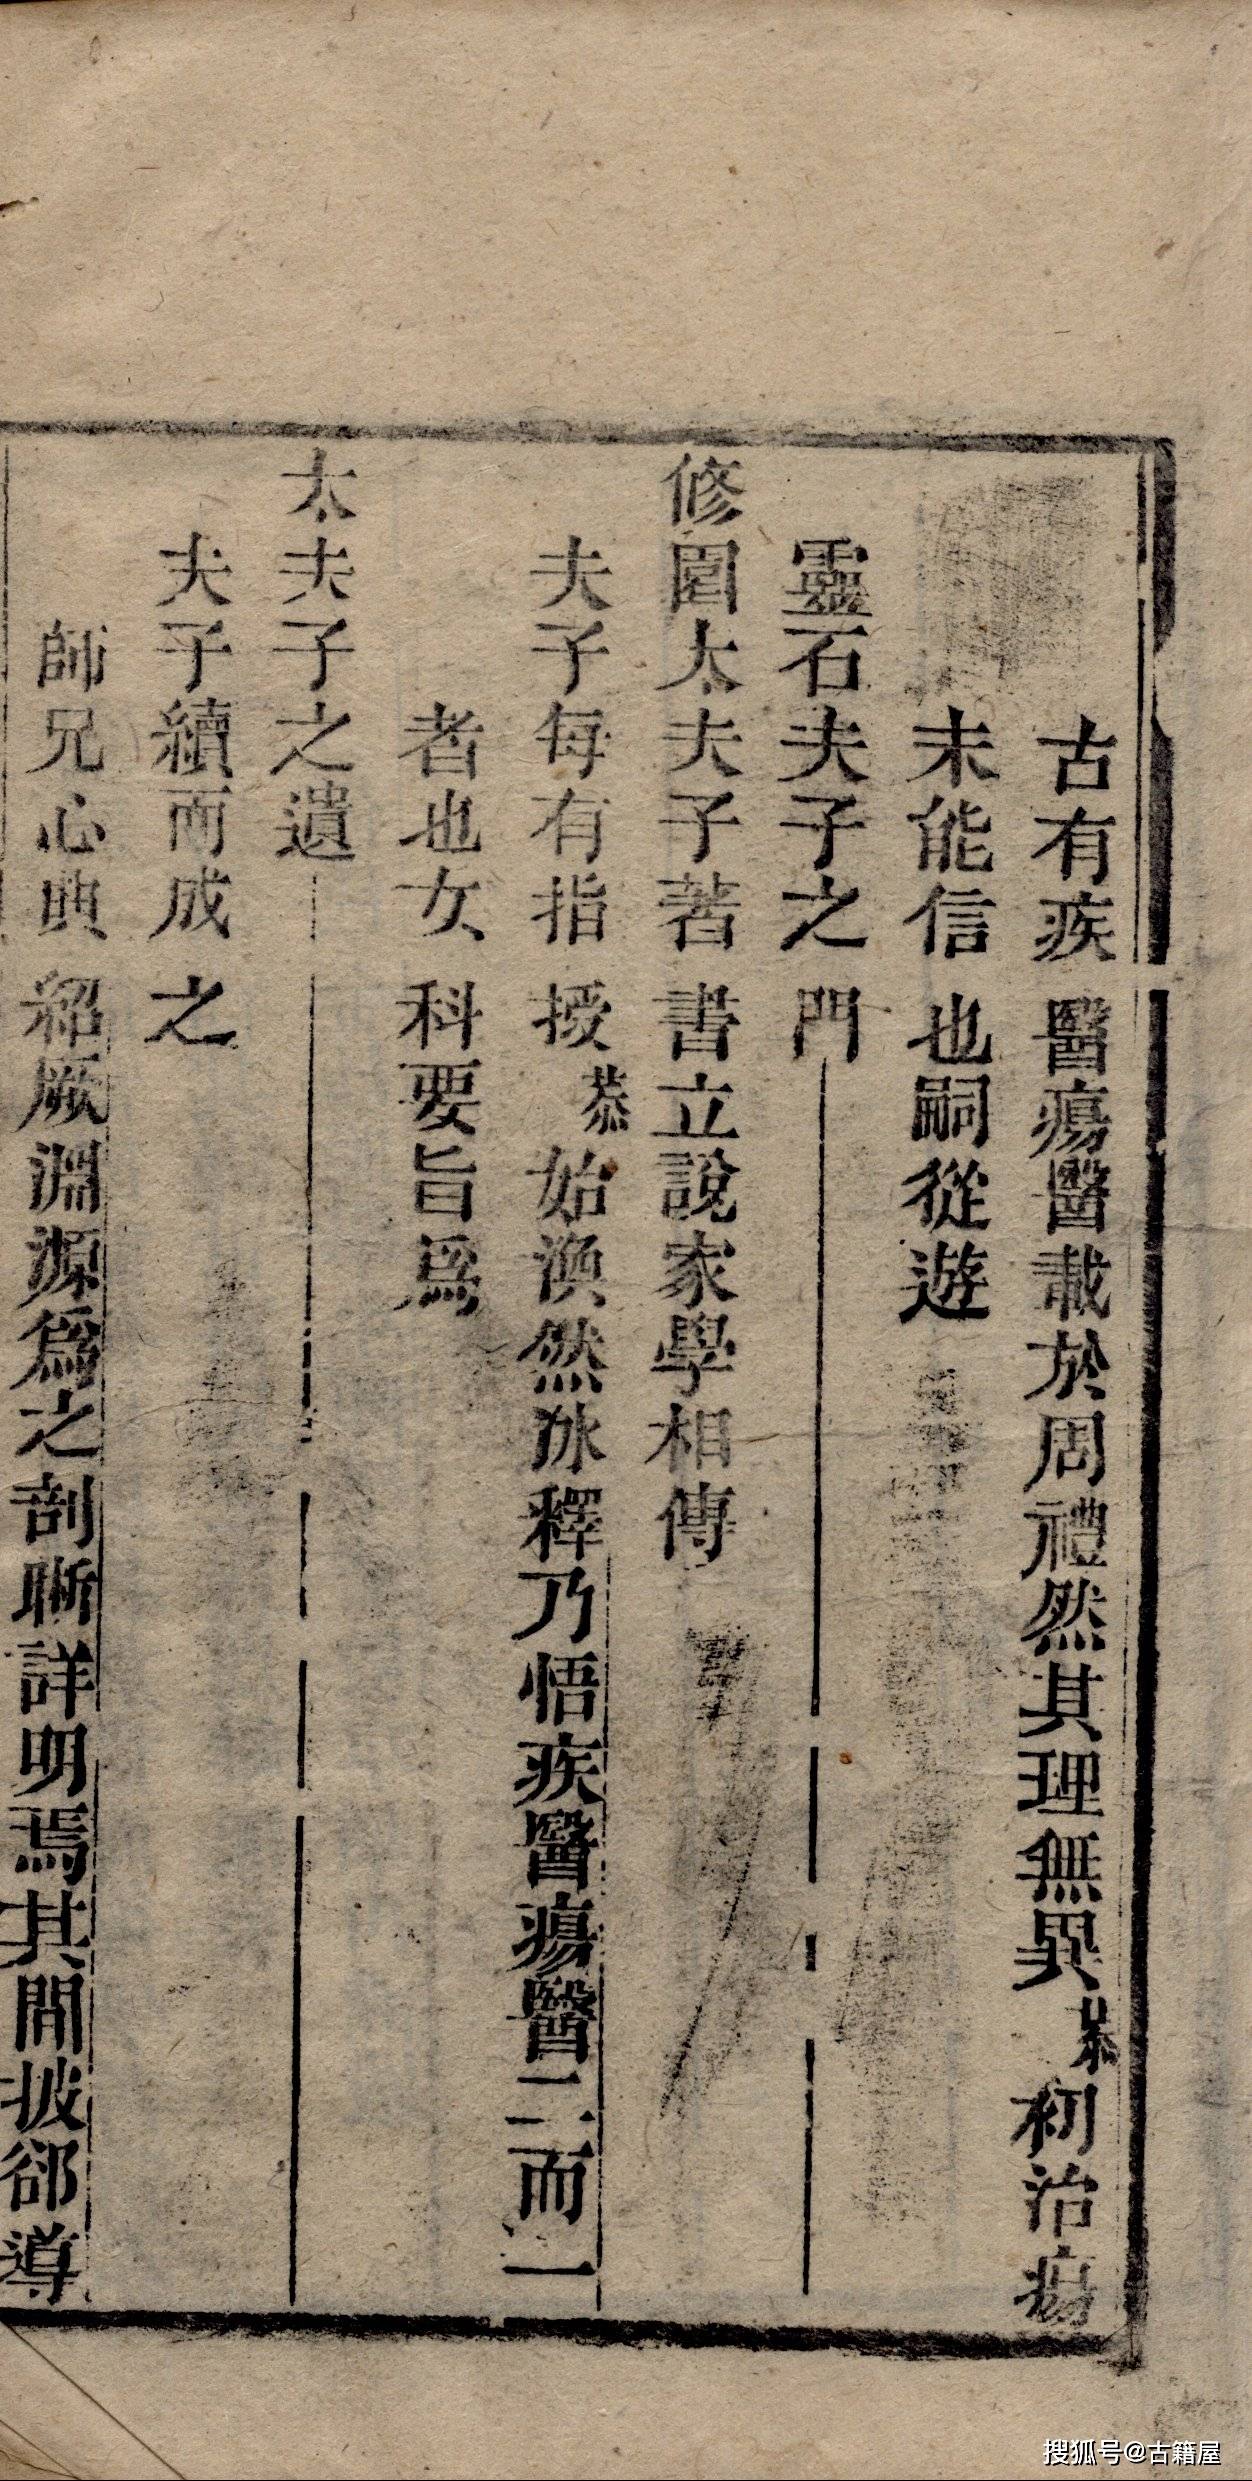 古有疾醫瘍醫載於周禮然其理無異恭初治瘍
未能信也嗣從遊
靈石夫子之門
修園太夫子著書立說家學相傳
夫子每有指授恭始渙然冰釋乃悟疾醫瘍醫二而一
者也女科要旨爲
太夫子之遺
夫子續而成之
師兄心典紹厥淵源爲之剖晰詳明焉其間披郤導
搜狐号@古籍屋